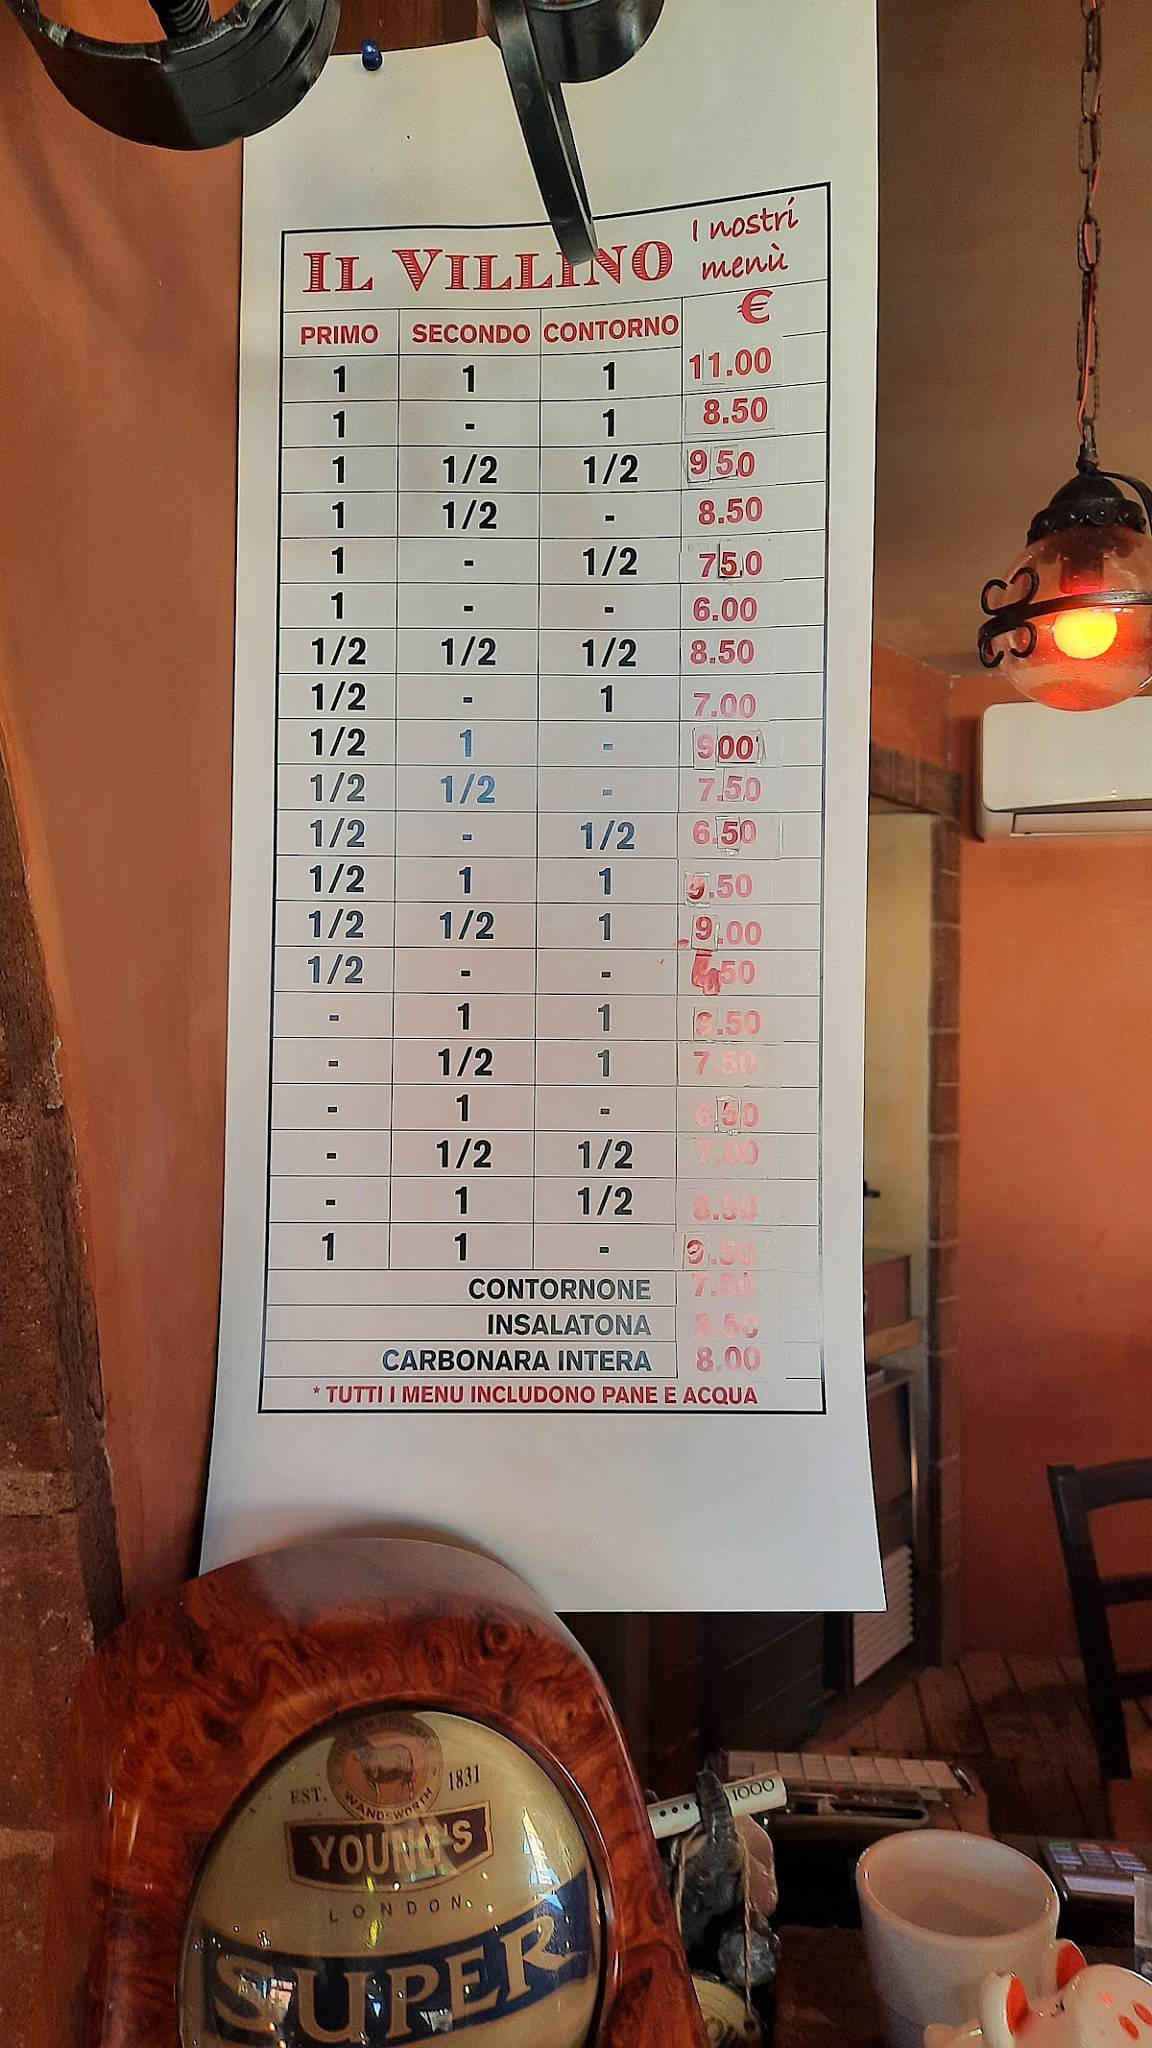 IL VILLINO I nostri
menù
PRIMO SECONDO CONTORNO €
1 1 1 11.00
1 - 1 8.50
1 1/2 1/2 9 50
1 1/2 - 8.50
1 - 1/2 750
1 - - 6.00
1/2 1/2 1/2 8.50
1/2 - 1 7.00
1/2 1 - 900
1/2 1/2 - 7.50
1/2 - 1/2 6.50
1/2 1 1 9.50
1/2 1/2 1 9.00
1/2 - - 50
- 1 1 .50
- 1/2 1 7.50
- 1 - 6.50
- 1/2 1/2 7.00
- 1 1/2 8.50
1 1 - 9.50
CONTORNONE 7.50
INSALATONA 8.50
CARBONARA INTERA 8.00
* TUTTI I MENU INCLUDONO PANE E ACQUA
RAM BREWERY
EST. 1831
WANDSWORTH
YOUNG'S
LONDON
SUPER
1000